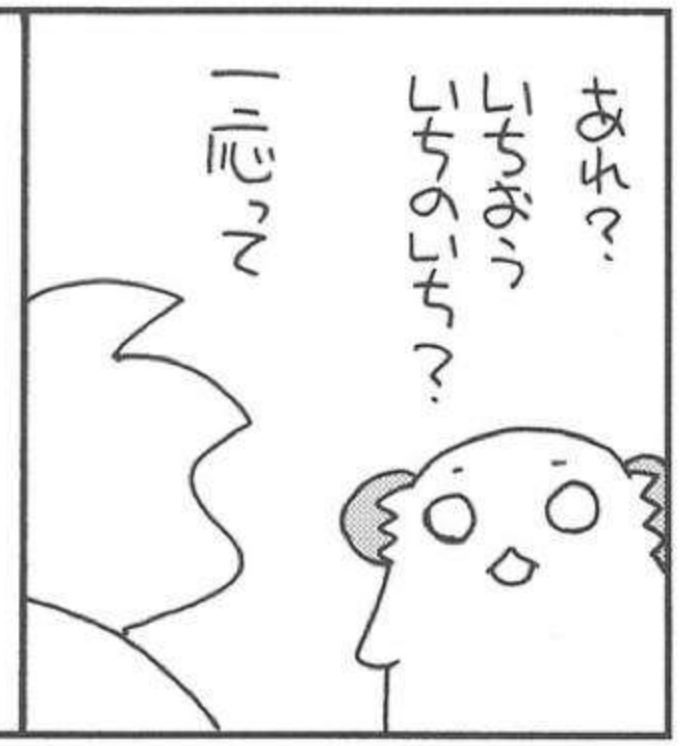 あれ?
いちおう
いちのいち?
一応って